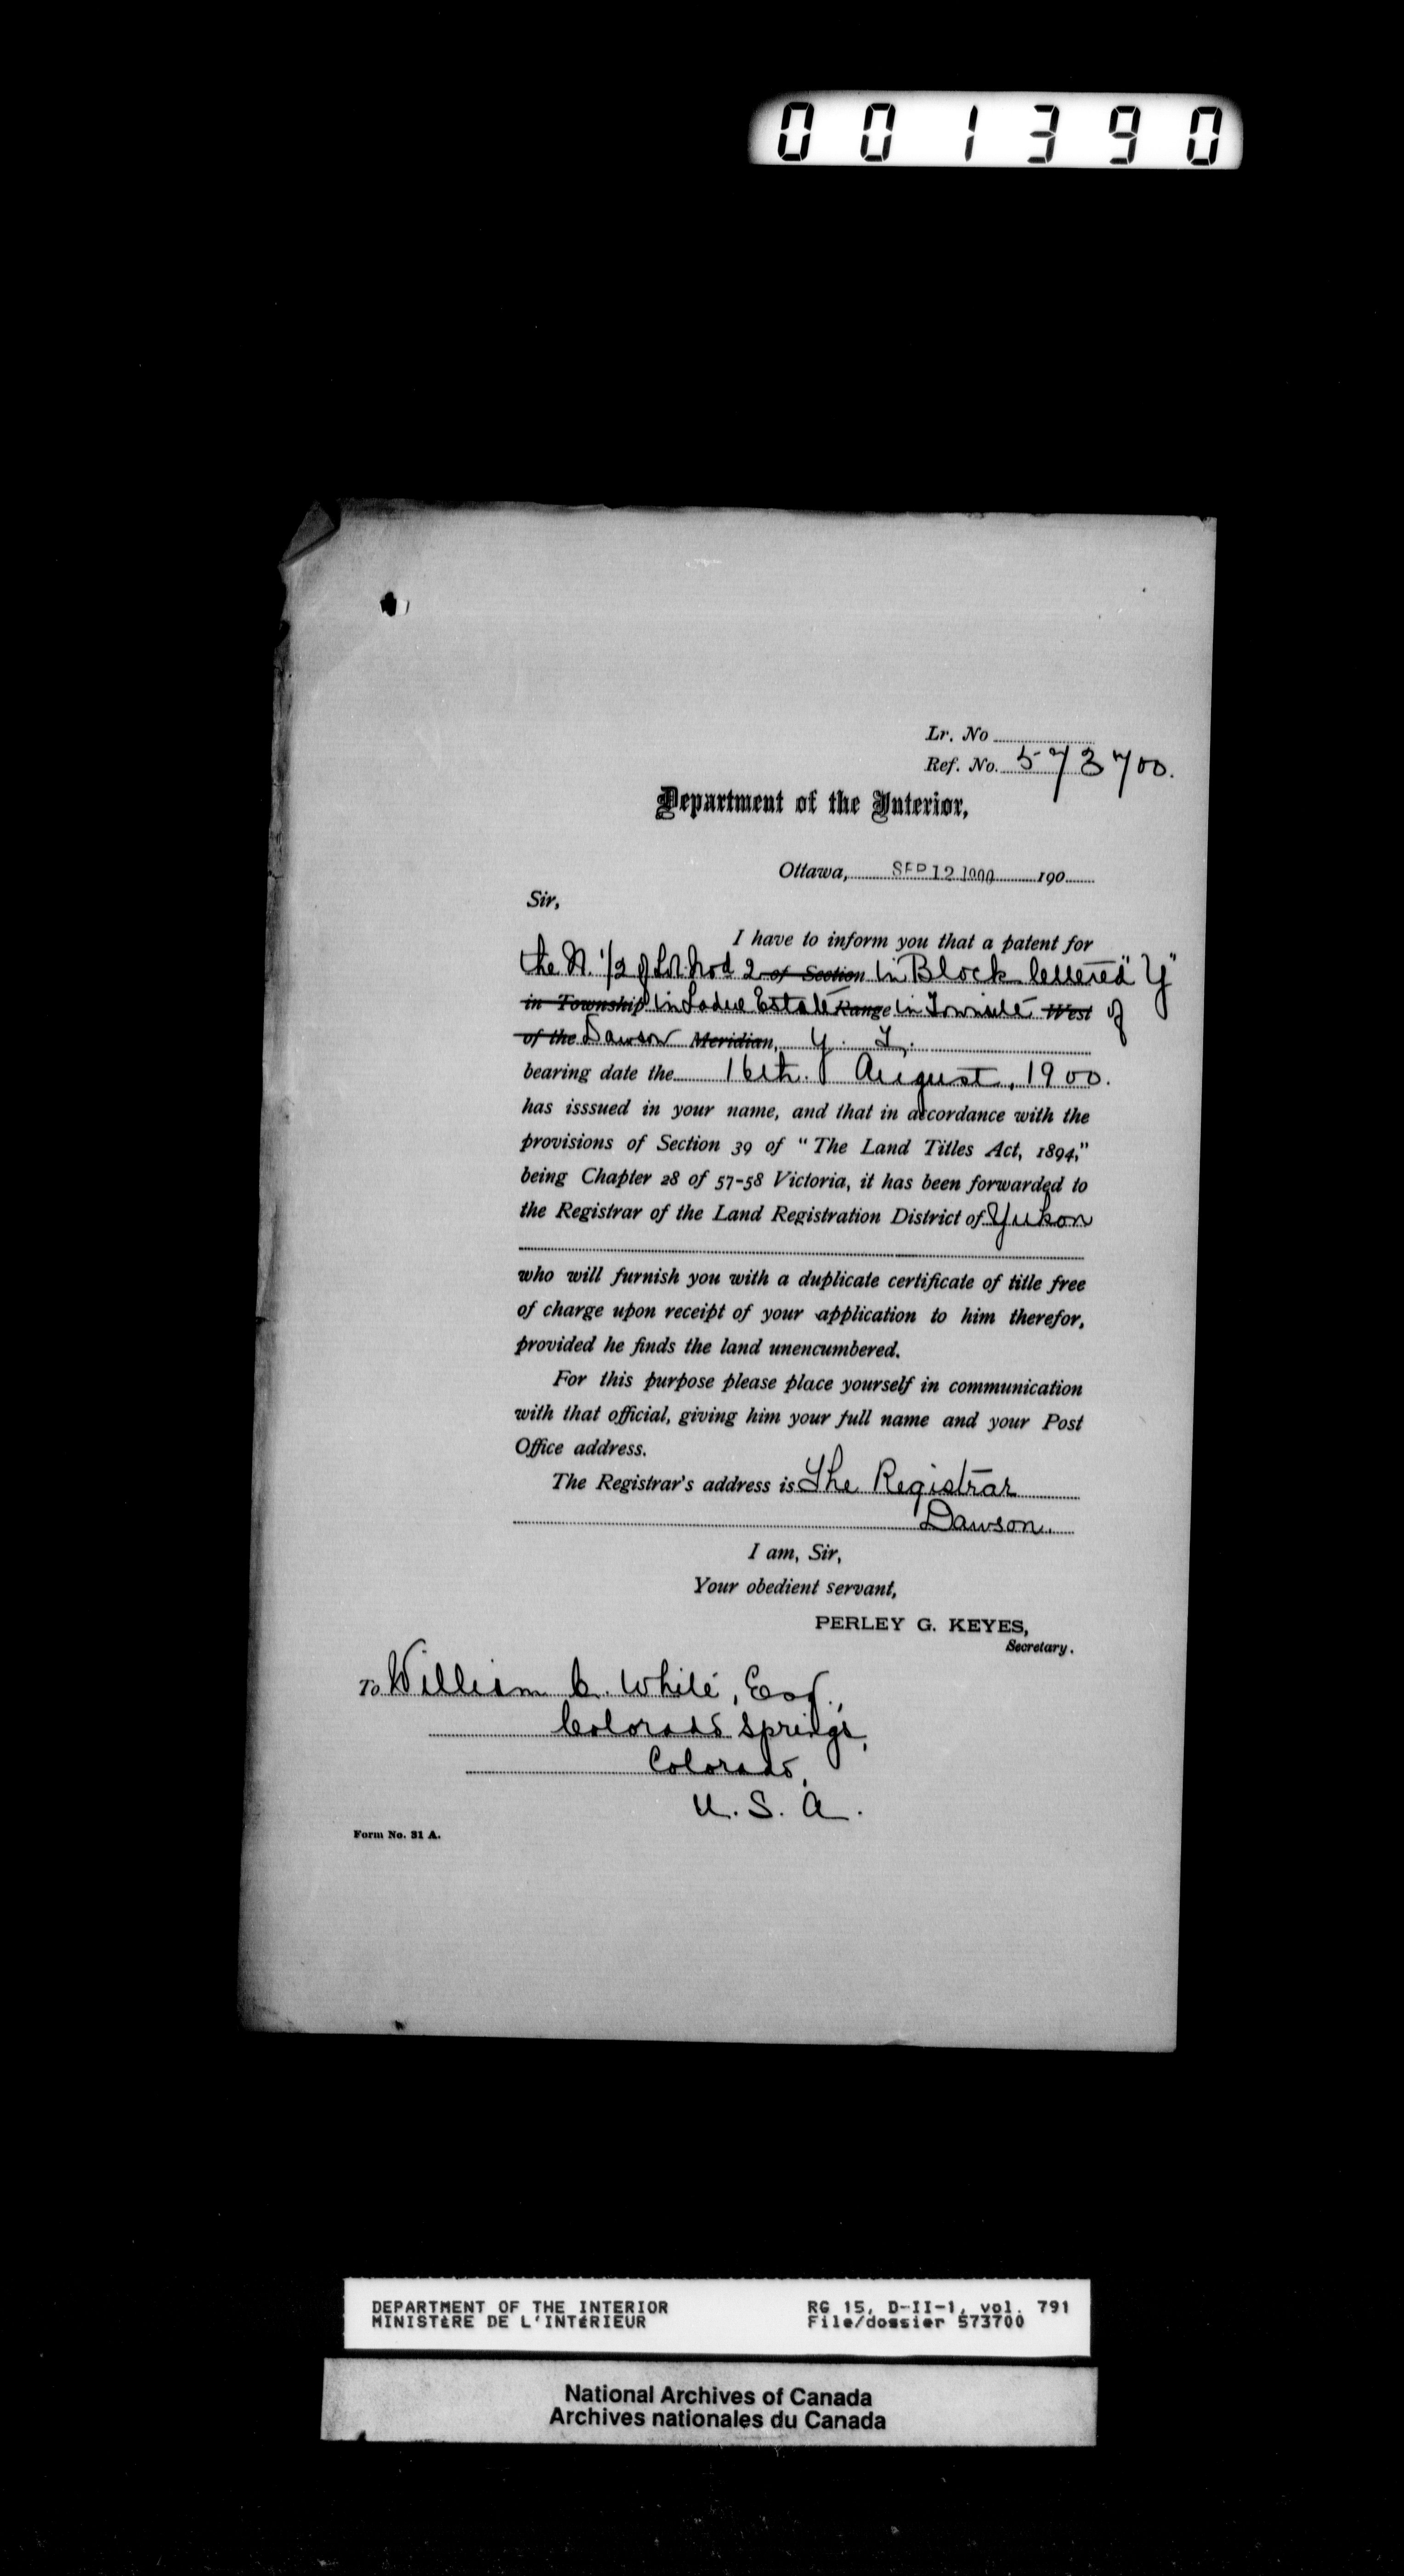 001390
Lr. No
Ref. No. 573700.
Department of the Interior,
Ottawa, SEP 12 1900 190
Sir,
I have to inform you that a patent for
the N. 1/2 of Lot No 2 of Section in Block lettered "Y"
in Township in Ladue Estate Range in Townsite West of
of the Dawson Meridian, Y. T.
bearing date the 16th. August, 1900.
has isssued in your name, and that in accordance with the
provisions of Section 39 of "The Land Titles Act, 1894,"
being Chapter 28 of 57-58 Victoria, it has been forwarded to
the Registrar of the Land Registration District of Yukon
who will furnish you with a duplicate certificate of title free
of charge upon receipt of your application to him therefor,
provided he finds the land unencumbered.
For this purpose please place yourself in communication
with that official, giving him your full name and your Post
Office address.
The Registrar's address is The Registrar
Dawson.
I am, Sir,
Your obedient servant,
PERLEY G. KEYES,
Secretary.
To William C. White, Esq.,
Colorado Springs,
Colorado,
U. S. A.
Form No. 31 A.
DEPARTMENT OF THE INTERIOR RG 15, D-II-1, vol. 791
MINISTÈRE DE L'INTÉRIEUR File/dossier 573700
National Archives of Canada
Archives nationales du Canada